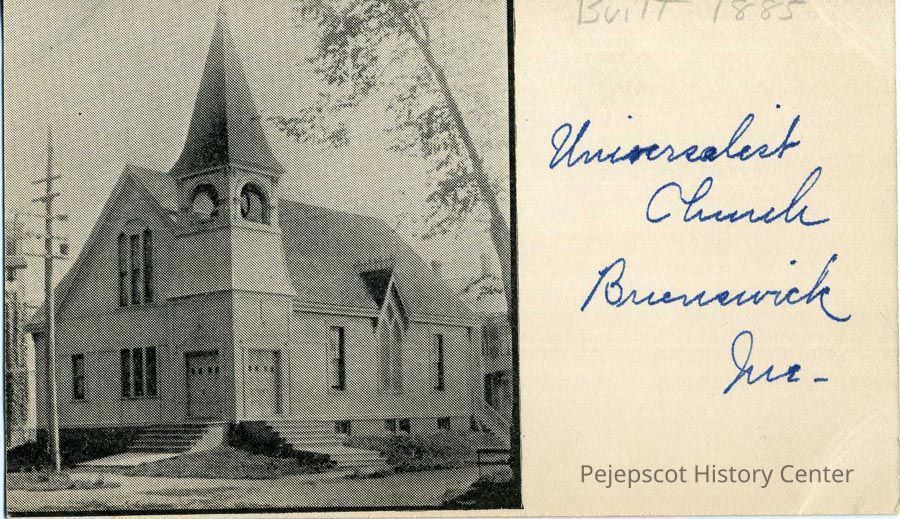 Built 1885
Universalist
Church
Brunswick
Me-
Pejepscot History Center